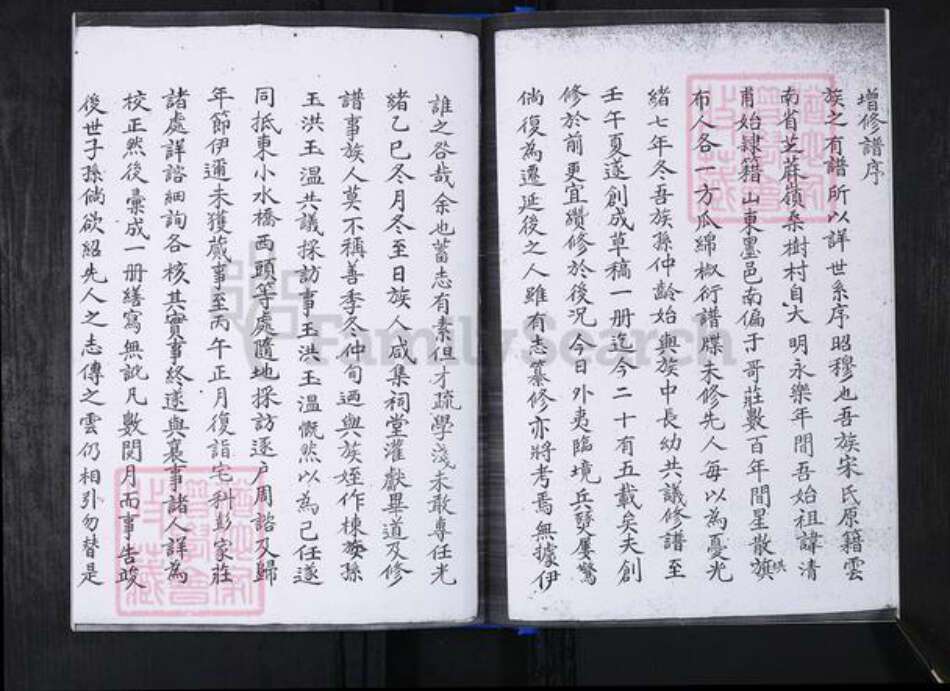 增修譜序
族之有譜所以詳世系序昭穆也吾族宋氏原籍雲
南省芝蔴嶺桑樹村自大明永樂年間吾始祖諱清
甫始隸籍山東墨邑南偏于哥莊數百年間星散旗
布人各一方瓜綿椒衍譜牒未修先人每以為憂光
緒七年冬吾族孫仲齡始與族中長幼共議修譜至
壬午夏遂創成草稿一册迄今二十有五載矣夫創
修於前更宜纘修於後況今日外夷臨境兵燹屢驚
倘復為遷延後之人雖有志纂修亦將考焉無據伊
誰之咎哉余也蓄志有素但才疏學淺未敢專任光
緒乙巳冬月冬至日族人咸集祠堂灌獻畢道及修
譜事族人莫不稱善季冬仲旬迺與族姪作棟族孫
玉洪玉溫共議採訪事玉洪玉溫慨然以為己任遂
同抵東小水橋西頭等處隨地採訪逐户周諮及歸
年節伊邇未獲蕆事至丙午正月復詣宅科彭家莊
諸處詳諮細詢各核其實事終遂與襄事諸人詳為
校正然後彙成一册繕寫無訛凡數閱月而事告竣
後世子孫倘欲紹先人之志傳之雲仍相引勿替是
FamilySearch